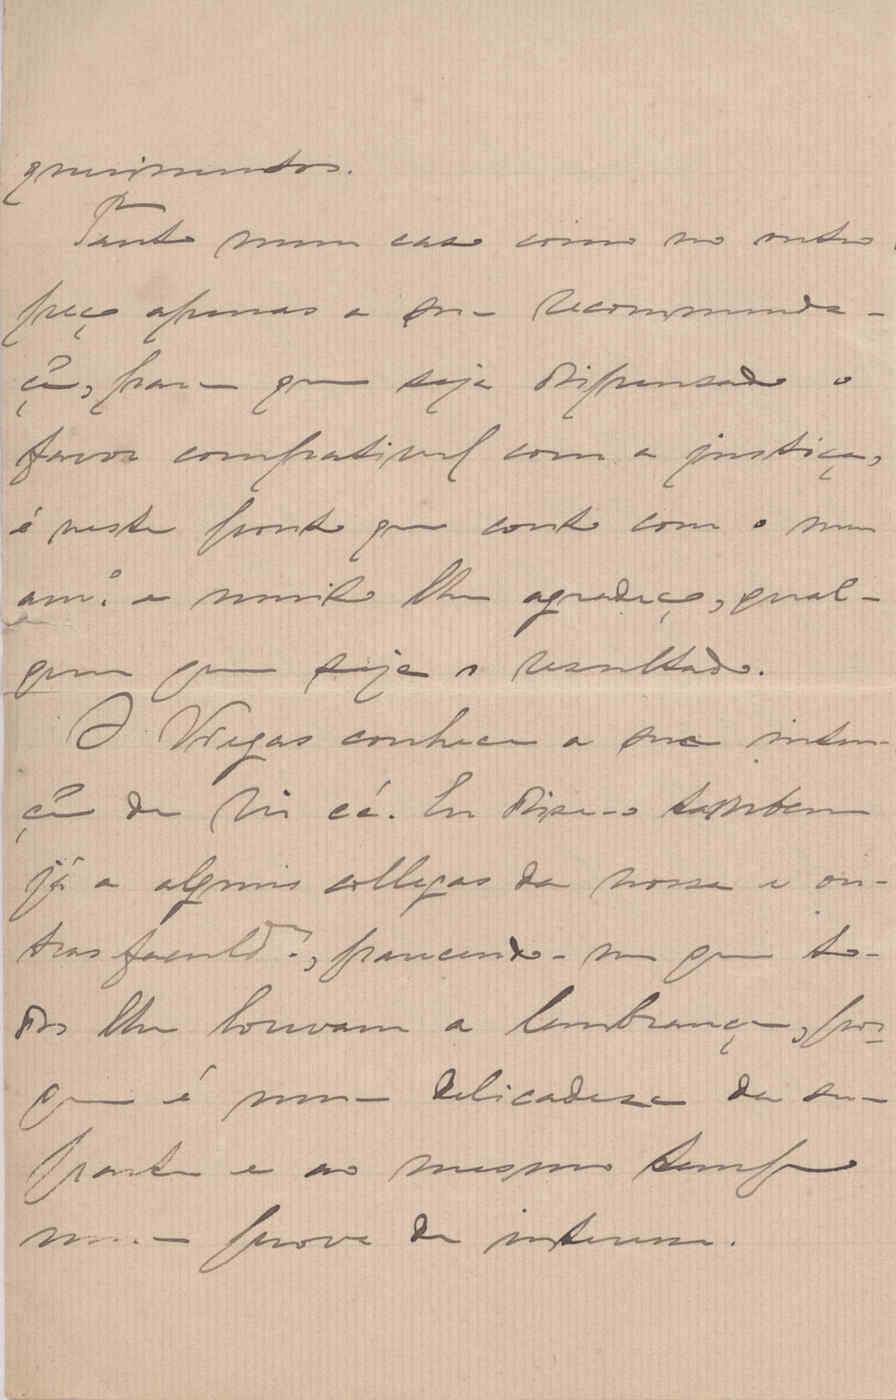 querimentos.
Tanto num caso como no outro,
peço apenas a sua recommenda-
ção, para que seja dispensado o
favor compativel com a justiça,
é neste ponto que conto com o meu
am.º e muito lhe agradeço, qual-
quer que seja o resultado.
O Viegas conhece a sua inten-
ção de vir cá. Eu disse-o tambem
já a alguns collegas da nossa e ou-
tras faculd.es, parecendo-me que to-
dos lhe louvam a lembrança, por-
que é uma delicadeza da sua
parte e ao mesmo tempo
uma prova de interesse.